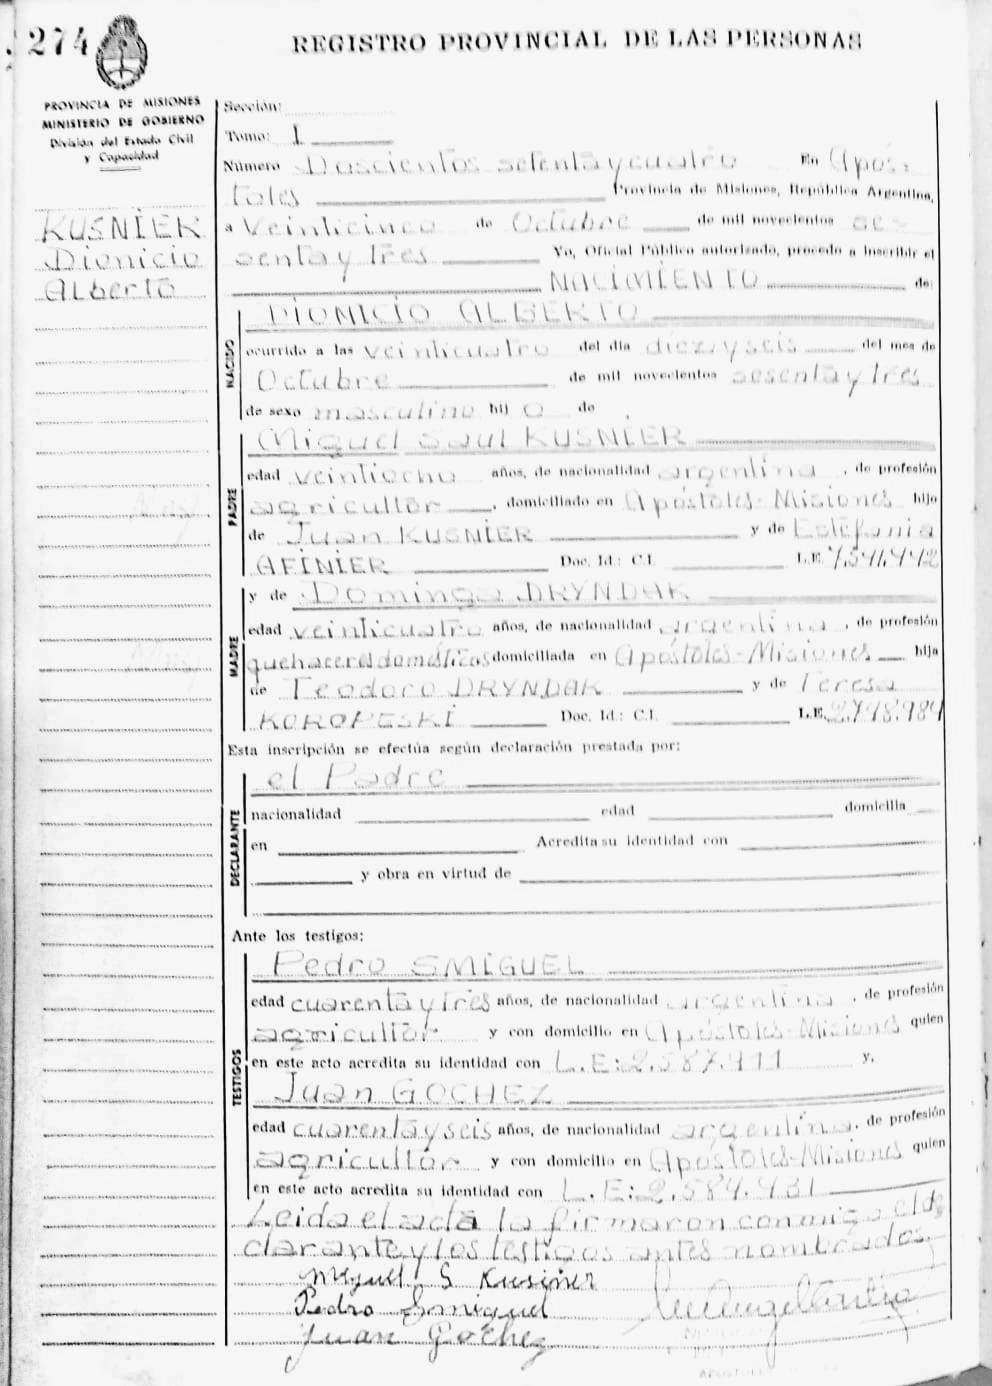 274
REGISTRO PROVINCIAL DE LAS PERSONAS
PROVINCIA DE MISIONES
MINISTERIO DE GOBIERNO
División del Estado Civil
y Capacidad
KUSNIER
Dionicio
Alberto
Sección:
Tomo: I
Número Doscientos setenta y cuatro En Após-
toles Provincia de Misiones, República Argentina,
a Veinticinco de Octubre de mil novecientos se-
senta y tres Yo, Oficial Público autorizado, procedo a inscribir el
NACIMIENTO de:
NACIDO
DIONICIO ALBERTO
ocurrido a las veinticuatro del día diez y seis del mes de
Octubre de mil novecientos sesenta y tres
de sexo masculino hij o de
PADRE
Miguel Saul KUSNIER
edad veintiocho años, de nacionalidad argentina, de profesión
agricultor, domiciliado en Apóstoles-Misiones hijo
de Juan KUSNIER y de Estefania
AFINIER Doc. Id.: C.I. L.E. 7.541.442
MADRE
y de Dominga DRYNDAK
edad veinticuatro años, de nacionalidad argentina, de profesión
quehaceres domésticos domiciliada en Apóstoles-Misiones hija
de Teodoro DRYNDAK y de Teresa
KOROPESKI Doc. Id.: C.I. L.E. 2.798.984
Esta inscripción se efectúa según declaración prestada por:
DECLARANTE
el Padre
nacionalidad edad domicilia
en Acredita su identidad con
y obra en virtud de
Ante los testigos:
TESTIGOS
Pedro SMIGUEL
edad cuarenta y tres años, de nacionalidad argentina, de profesión
agricultor y con domicilio en Apóstoles-Misiones quien
en este acto acredita su identidad con L.E: 2.587.911 y,
Juan GOCHEZ
edad cuarenta y seis años, de nacionalidad argentina, de profesión
agricultor y con domicilio en Apóstoles-Misiones quien
en este acto acredita su identidad con L.E: 2.584.431
Leida el acta la firmaron conmigo el de-
clarante y los testigos antes nombrados.
Miguel S Kusiner
Pedro Smiguel
Juan Gochez